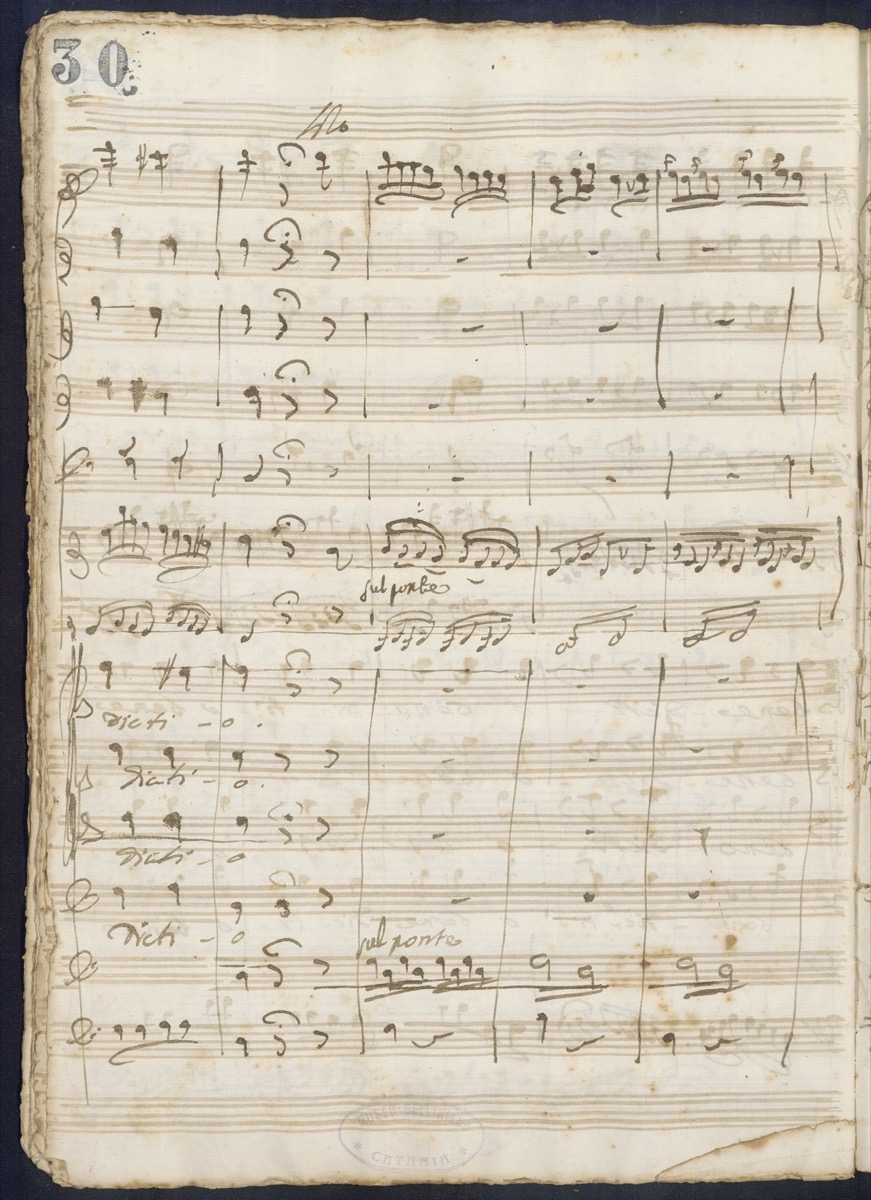 30
All.o
sul ponte
dicti - o.
dicti - o.
dicti - o
dicti - o
sul ponte
MUSEO BELLINIANO
CATANIA